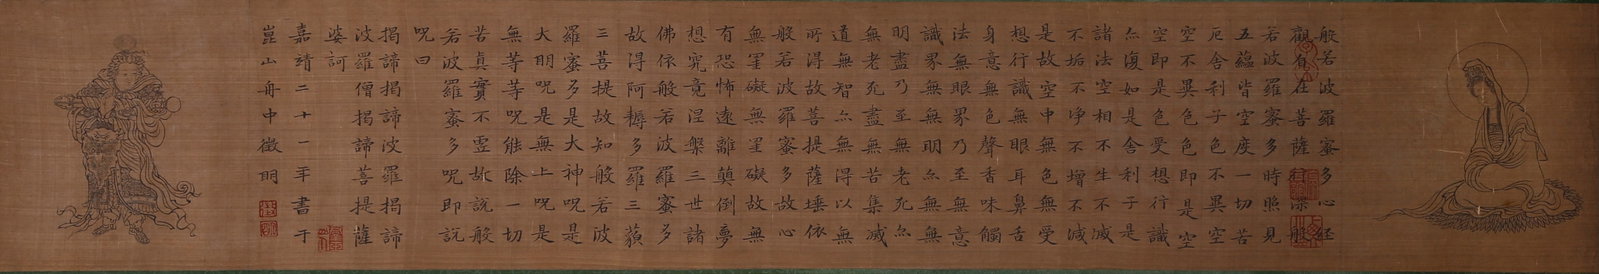 般若波羅蜜多心經
觀自在菩薩行深般
若波羅蜜多時照見
五蘊皆空度一切苦
厄舍利子色不異空
空不異色色即是空
空即是色受想行識
亦復如是舍利子是
諸法空相不生不滅
不垢不淨不增不減
是故空中無色無受
想行識無眼耳鼻舌
身意無色聲香味觸
法無眼界乃至無意
識界無無明亦無無
明盡乃至無老死亦
無老死盡無苦集滅
道無智亦無得以無
所得故菩提薩埵依
般若波羅蜜多故心
無罣礙無罣礙故無
有恐怖遠離顛倒夢
想究竟涅槃三世諸
佛依般若波羅蜜多
故得阿耨多羅三藐
三菩提故知般若波
羅蜜多是大神呪是
大明呪是無上呪是
無等等呪能除一切
苦真實不虛故說般
若波羅蜜多呪即說
呪曰
揭諦揭諦波羅揭諦
波羅僧揭諦菩提薩
婆訶
嘉靖二十一年書于
崑山舟中徵明